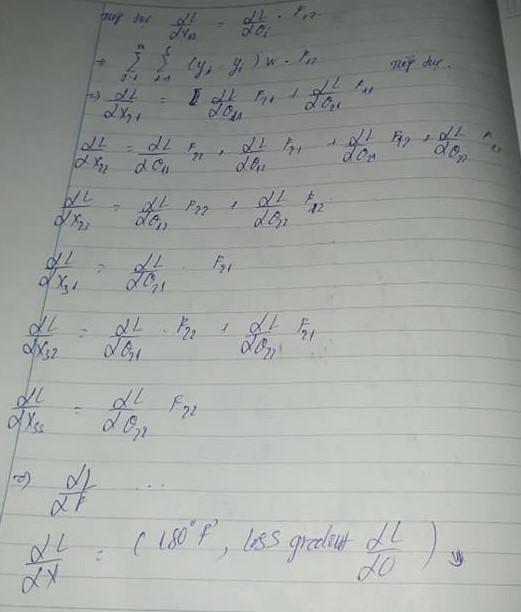 ∂L/∂X₁₃ = ∂L/∂O₁ · F₁₂
⇒ Σ Σ (yᵢ - yᵢ) w · F₁₂
⇒ ∂L/∂X₂₁ = ∂L/∂O₁₁ F₂₁ + ∂L/∂O₂₁ F₁₁
∂L/∂X₂₂ = ∂L/∂O₁₁ F₂₂ + ∂L/∂O₁₂ F₂₁ + ∂L/∂O₂₁ F₁₂ + ∂L/∂O₂₂ F₁₁
∂L/∂X₂₃ = ∂L/∂O₁₂ F₂₂ + ∂L/∂O₂₂ F₁₂
∂L/∂X₃₁ = ∂L/∂O₂₁ · F₂₁
∂L/∂X₃₂ = ∂L/∂O₂₁ · F₂₂ + ∂L/∂O₂₂ F₂₁
∂L/∂X₃₃ = ∂L/∂O₂₂ F₂₂
⇒ ∂L/∂F ...
∂L/∂X = (180° F, loss gradient ∂L/∂O)